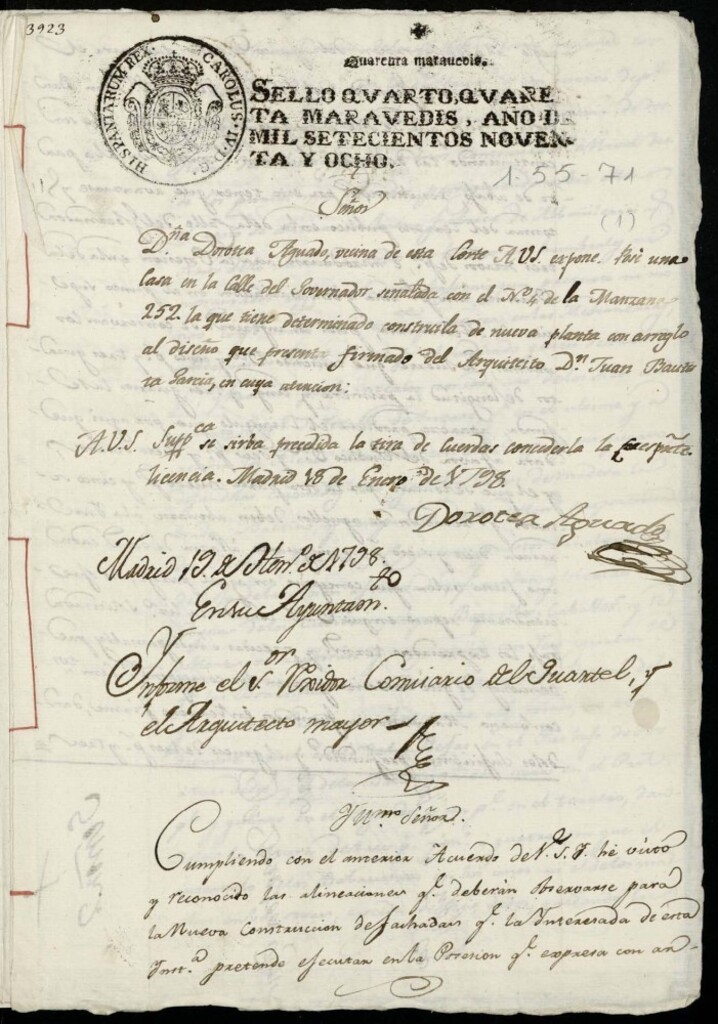 3923
HISPANIARUM REX. CAROLUS. IV. D. G.
Quarenta marauedis.
SELLO QVARTO, QVAREN
TA MARAVEDIS, AÑO DE
MIL SETECIENTOS NOVEN-
TA Y OCHO.
1-55-71
(1)
Señor
Dña Dorotea Aguado, vecina de esta Corte A.V.S. expone: Posé una
casa en la Calle del Governador señalada con el Nº 4 de la Manzana
252. la que tiene determinado construirla de nueva planta con arreglo
al diseño que presenta firmado del Arquitecto Dn Juan Bautis
ta Garcia, en cuya atencion:
A.V.S. Suppca se sirba precedida la tira de cuerdas concederla la
licencia. Madrid 18 de Enero de 1798.
Dorotea Aguado
Madrid 19. de Heno. de 1798
En su Ayuntamto.
Informe el Sor Rexidor Comisario del Quartel, y
el Arquitecto mayor
Yllmo Señor.
Cumpliendo con el anterior Acuerdo de V. S. Y. hé visto
y reconocido las alineaciones qe. deberán observarse para
la Nueva Construccion de fachadas qe. la Ynteresada de esta
Ynsta. pretende executar en la Posesion qe. expresa con an-